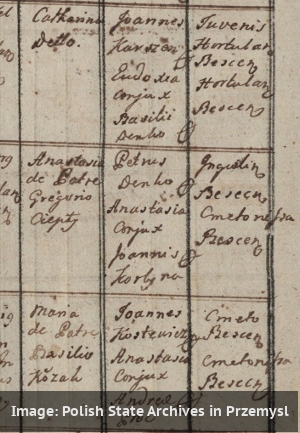 Catharina
Detto.
Joannes
Karszen
Eudoxia
Conjux
Basilii
Denko
Juvenis
Hortulan
Bescen
Hortulan
Bescen
Anastasia
de Patre
Gregorio
Ciepły
Petrus
Denko
Anastasia
Conjux
Joannis
Korbyna
Inquilin
Besecen
Cmetonessa
Bescen
Maria
de Patre
Basilio
Kożah
Joannes
Kostewicz
Anastasia
Conjux
Andreae
Cmeto
Bescen
Cmetonessa
Bescen
Image: Polish State Archives in Przemysl